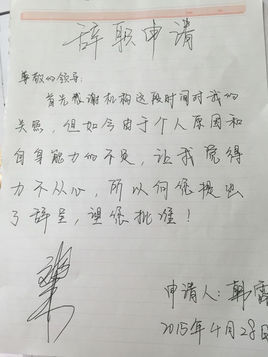 辞职申请
尊敬的领导:
首先感谢机构这段时间对我的
关照,但如今由于个人原因和
自身能力的不足,让我觉得
力不从心,所以向您提出
了辞呈,望您批准!
申请人:韩雪
2015年4月28日